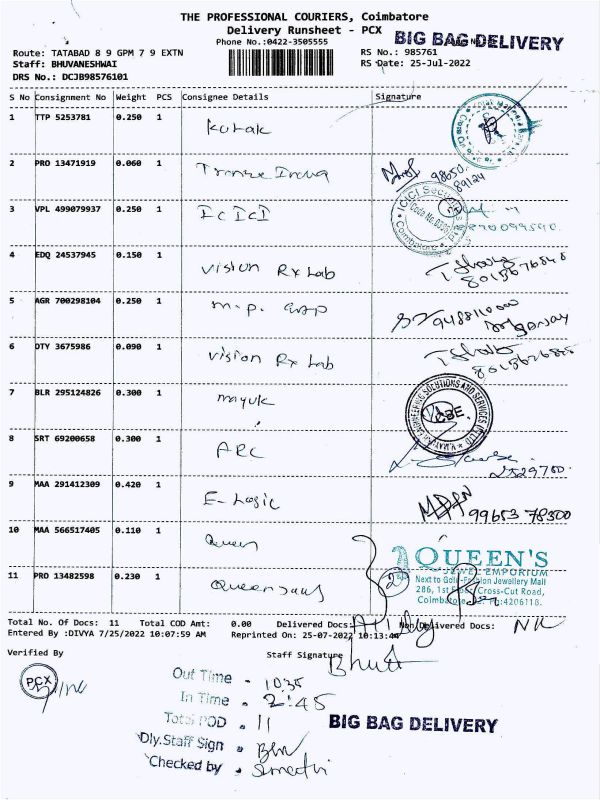 THE PROFESSIONAL COURIERS, Coimbatore
Delivery Runsheet - PCX
Phone No.:0422-3505555
BIG BAG DELIVERY
Route: TATABAD 8 9 GPM 7 9 EXTN
RS No.: 985761
Staff: BHUVANESHWAI
RS Date: 25-Jul-2022
DRS No.: DCJB98576101
S No Consignment No Weight PCS Consignee Details Signature
1 TTP 5253781 0.250 1 Kotak
2 PRO 13471919 0.060 1 98650 89124
3 VPL 499079937 0.250 1 ICICI
ICICI Securi
Coimbatore
4 EDQ 24537945 0.150 1 Vision Rx Lab
5 AGR 700298104 0.250 1 m.p. 9488110000
6 DTY 3675986 0.090 1 Vision Rx Lab
7 BLR 295124826 0.300 1 mayuk
ENGINEERING SOLUTIONS AND SERVICES
CBE.
8 SRT 69200658 0.300 1 ARC 2529780
9 MAA 291412309 0.420 1 E-Logic 99653 78500
10 MAA 566517405 0.110 1 Queen
QUEEN'S
JEWEL EMPORIUM
11 PRO 13482598 0.230 1 2
Jewellery Mall
286, 1st Cross-Cut Road,
4206118.
Total No. Of Docs: 11 Total COD Amt: 0.00 Delivered Docs: Non Delivered Docs: Nil
Entered By :DIVYA 7/25/2022 10:07:59 AM Reprinted On: 25-07-2022 10:13:44
Verified By Staff Signature
PCX
Out Time - 10.35
In Time - 2:45
Total POD - 11
BIG BAG DELIVERY
Dly.Staff Sign
Checked by